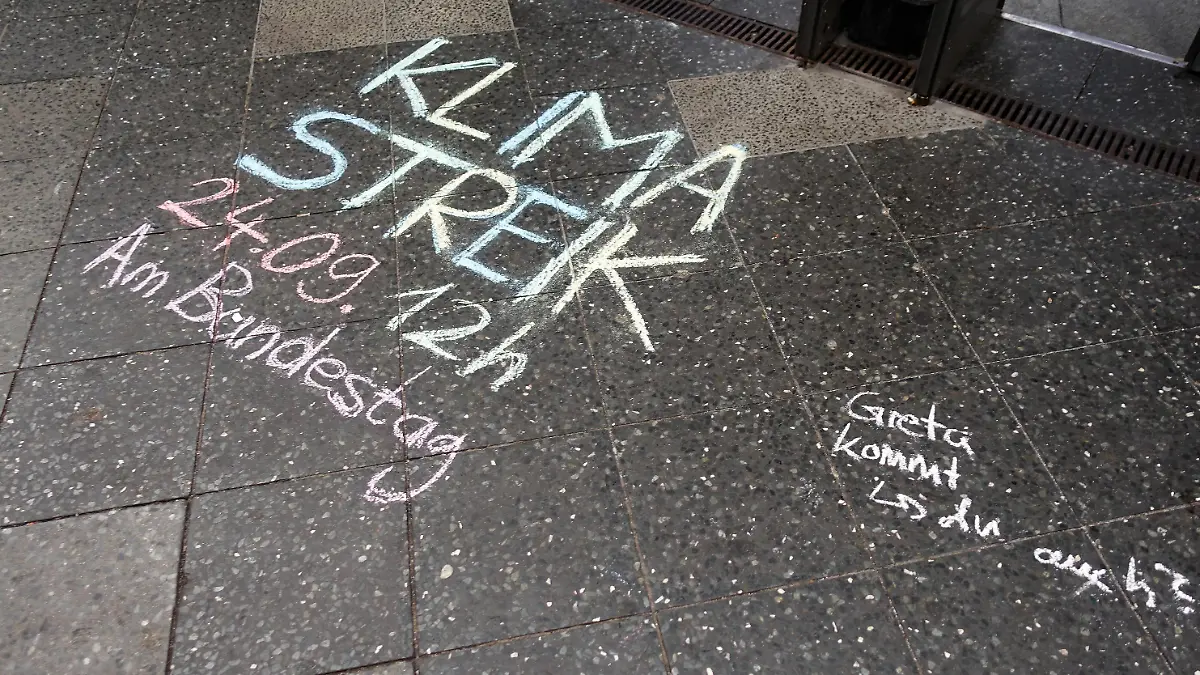 KLIMA
STREIK
24.09. 12h
Am Bundestag
Greta
kommt
du